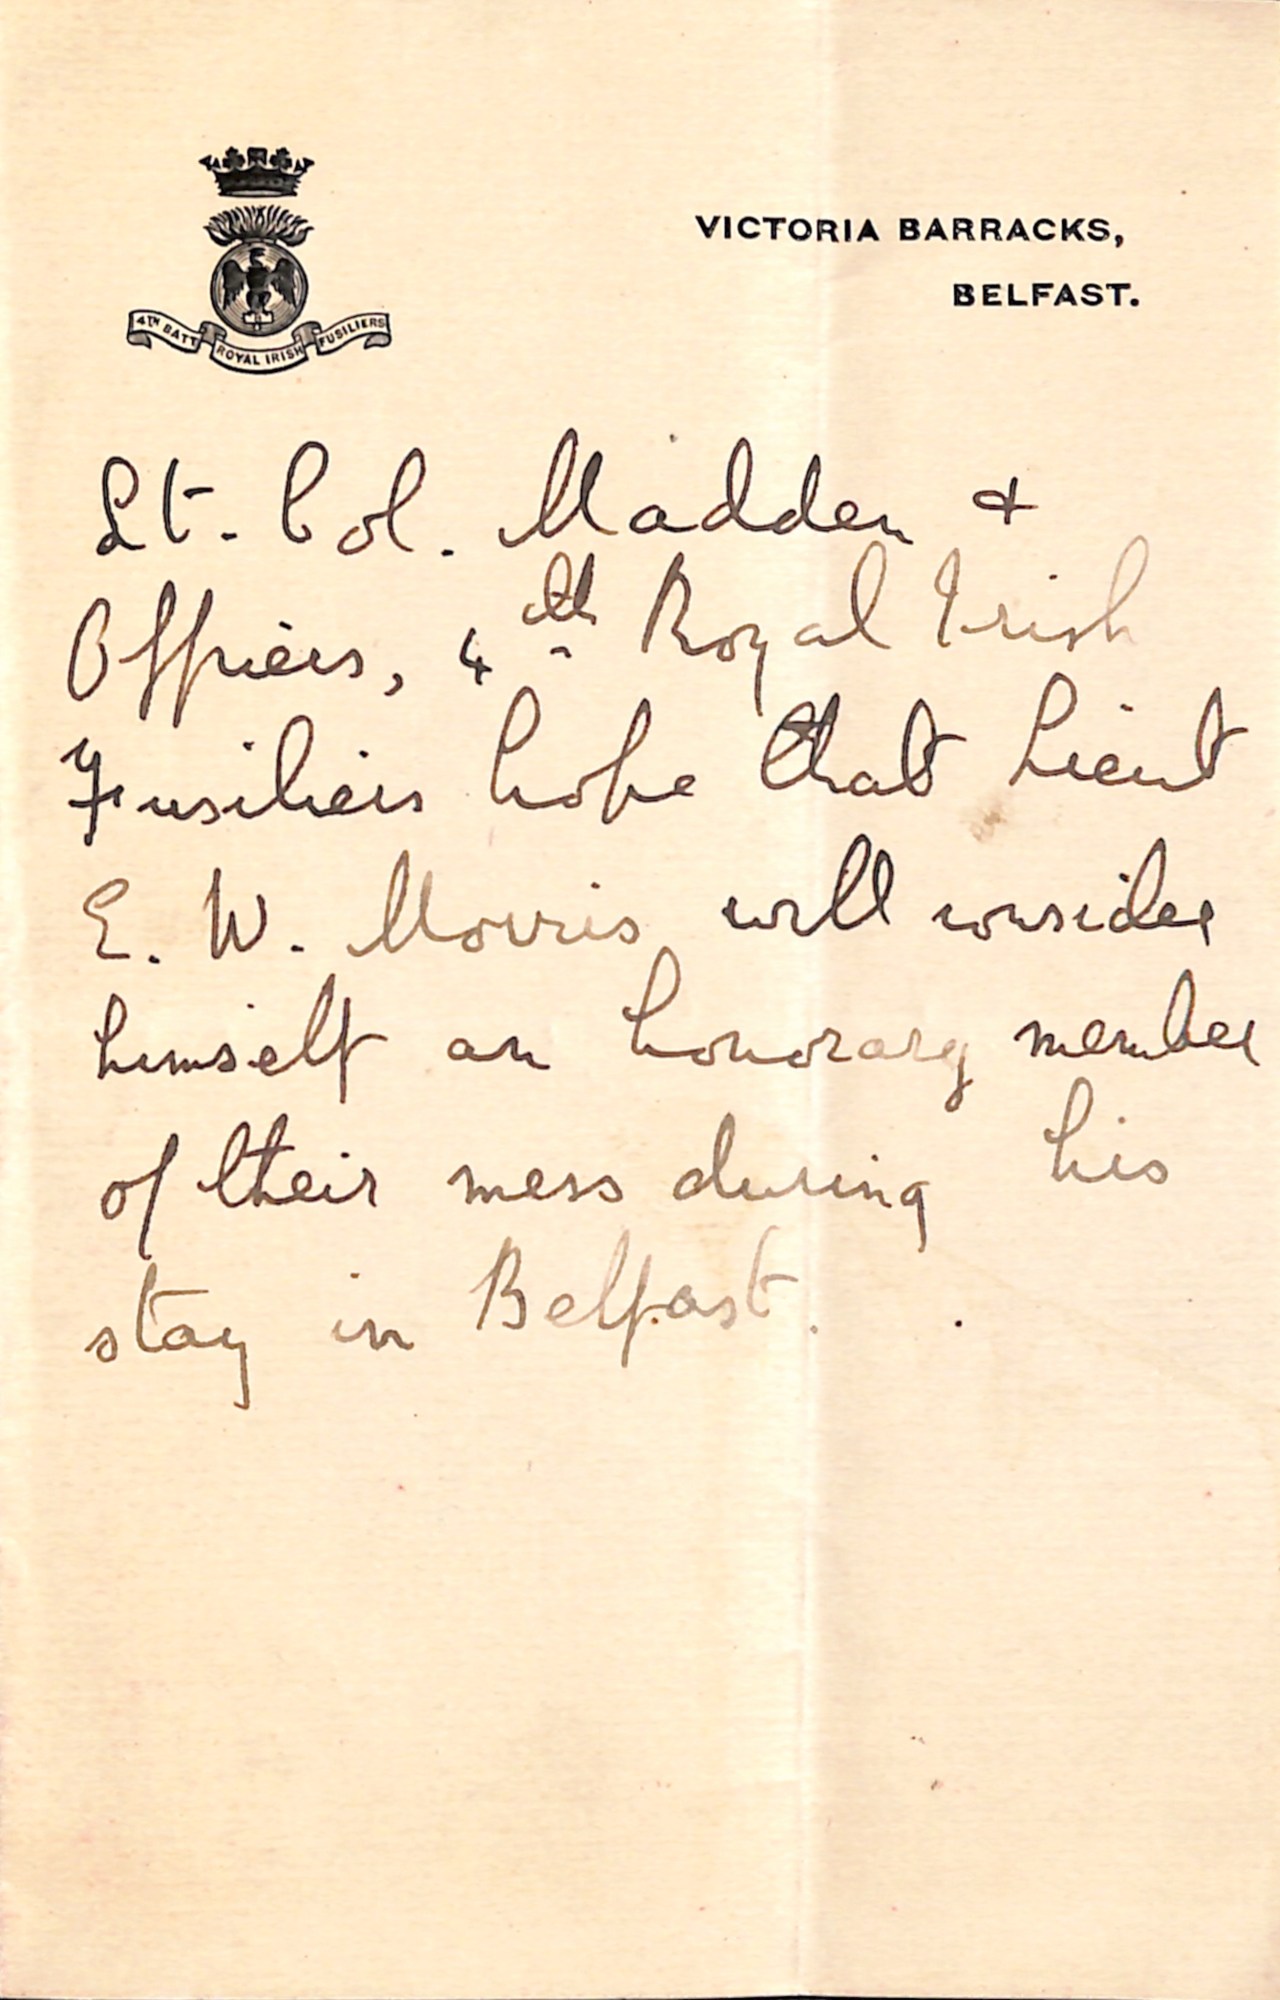 4TH BATT ROYAL IRISH FUSILIERS
VICTORIA BARRACKS,
BELFAST.
Lt. Col. Madden &
Officers, 4th Royal Irish
Fusiliers hope that Lieut
E. W. Morris will consider
himself an honorary member
of their mess during his
stay in Belfast.